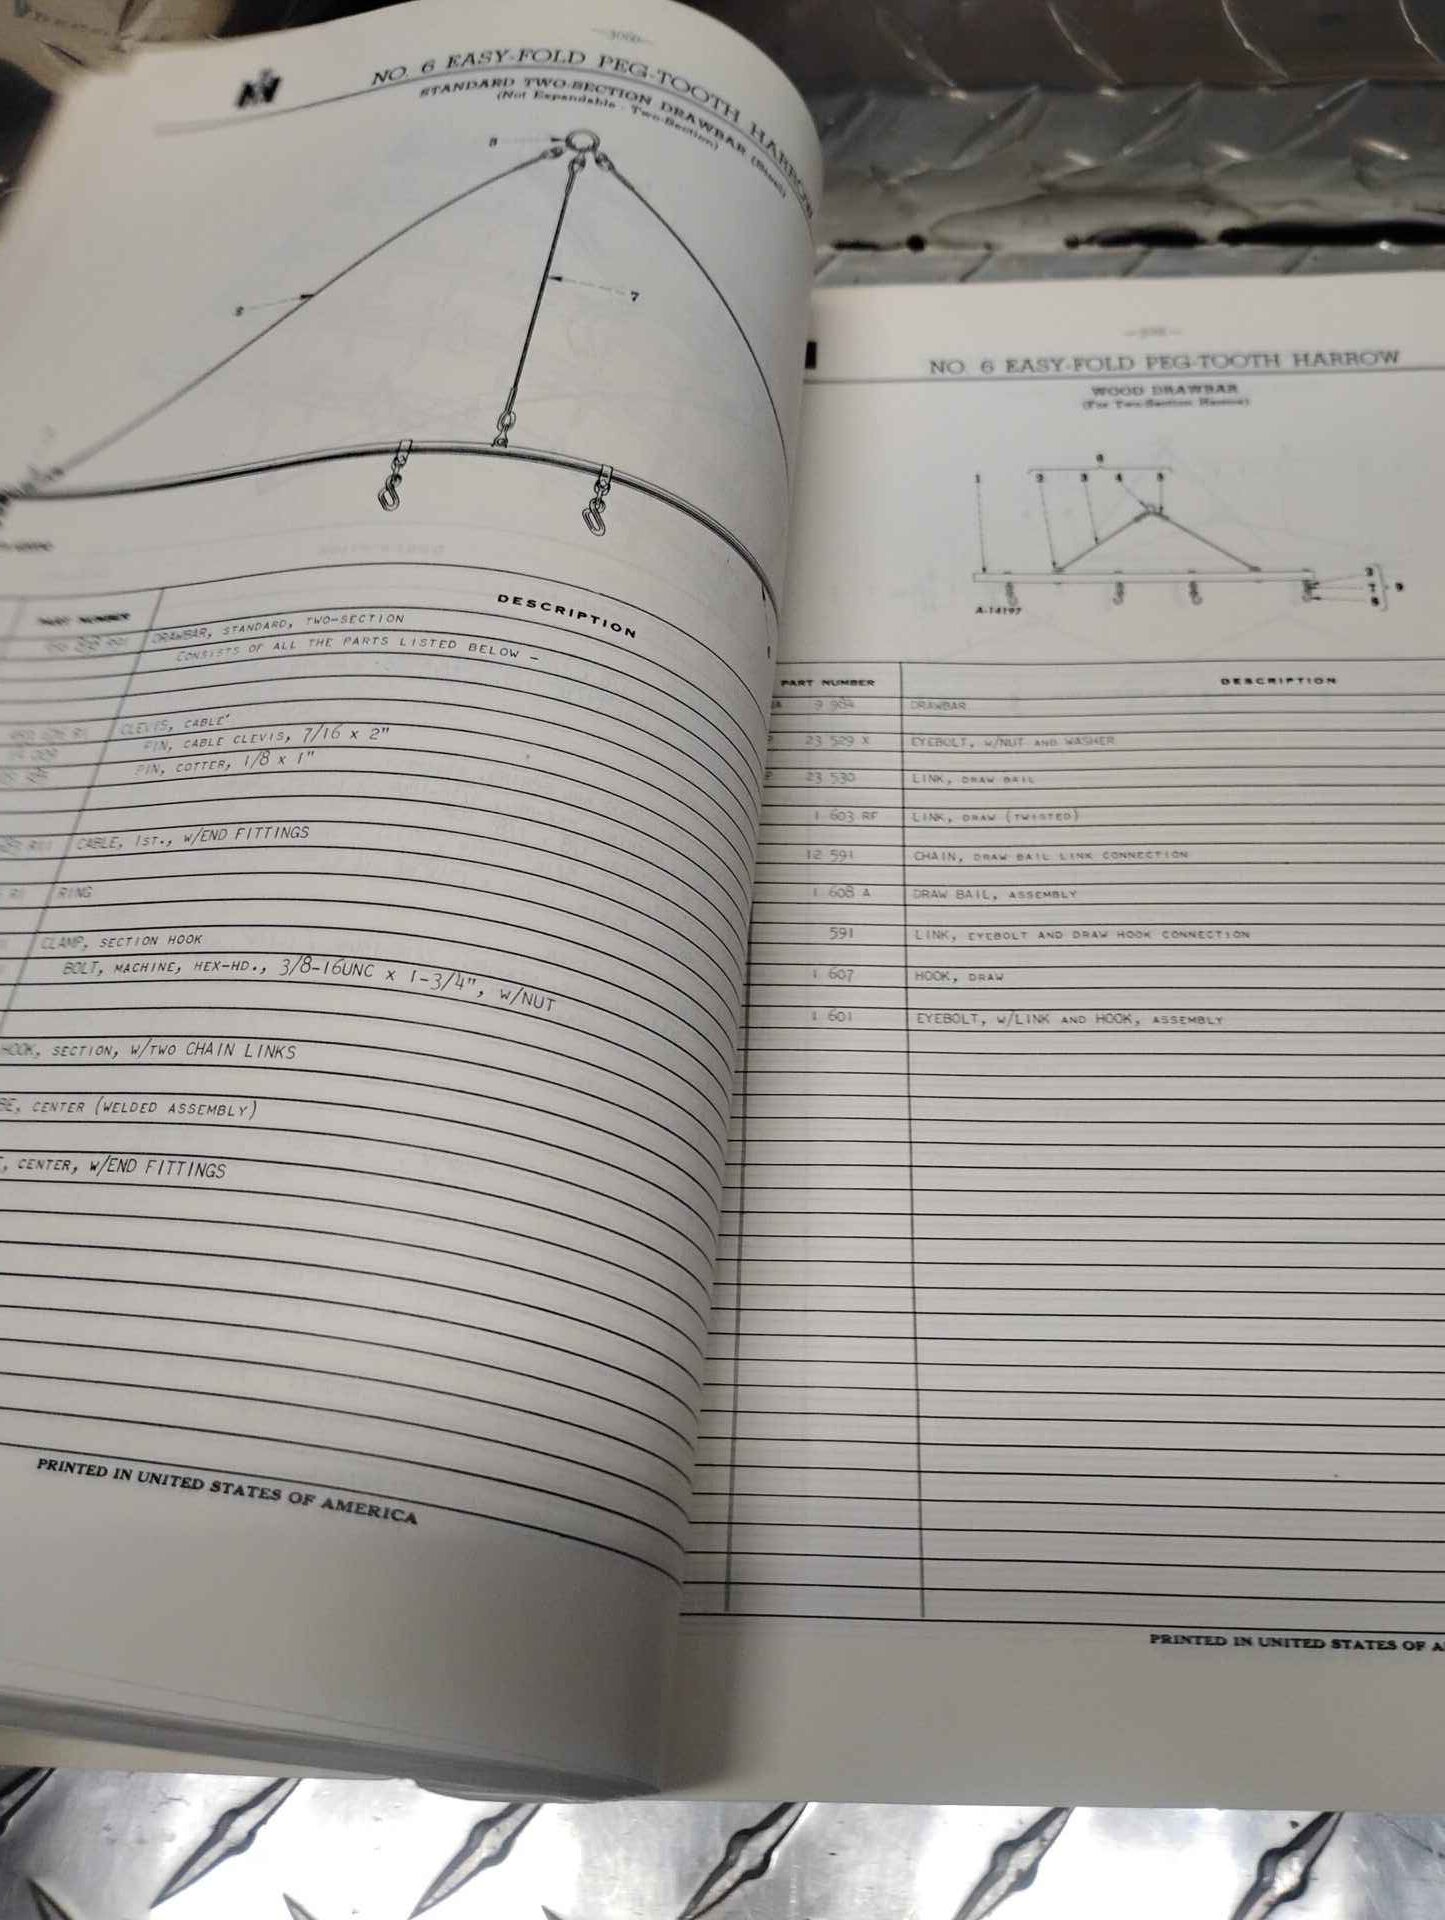 NO. 6 EASY-FOLD PEG-TOOTH HARROW
STANDARD TWO-SECTION DRAWBAR (Steel)
(Not Expandable - Two-Section)
7
PART NUMBER
DESCRIPTION
DRAWBAR, STANDARD, TWO-SECTION
CONSISTS OF ALL THE PARTS LISTED BELOW -
CLEVIS, CABLE
PIN, CABLE CLEVIS, 7/16 x 2"
PIN, COTTER, 1/8 x 1"
CABLE, 1ST., W/END FITTINGS
R1 RING
CLAMP, SECTION HOOK
BOLT, MACHINE, HEX-HD., 3/8-16UNC x 1-3/4", W/NUT
HOOK, SECTION, W/TWO CHAIN LINKS
BE, CENTER (WELDED ASSEMBLY)
, CENTER, W/END FITTINGS
PRINTED IN UNITED STATES OF AMERICA
NO. 6 EASY-FOLD PEG-TOOTH HARROW
WOOD DRAWBAR
(For Two-Section Harrow)
6
1 2 3 4 5
3
7 9
8
A-14197
PART NUMBER DESCRIPTION
A 9 984 DRAWBAR
P 23 529 X EYEBOLT, W/NUT AND WASHER
P 23 530 LINK, DRAW BAIL
1 603 RF LINK, DRAW (TWISTED)
12 591 CHAIN, DRAW BAIL LINK CONNECTION
1 608 A DRAW BAIL, ASSEMBLY
591 LINK, EYEBOLT AND DRAW HOOK CONNECTION
1 607 HOOK, DRAW
1 601 EYEBOLT, W/LINK AND HOOK, ASSEMBLY
PRINTED IN UNITED STATES OF A